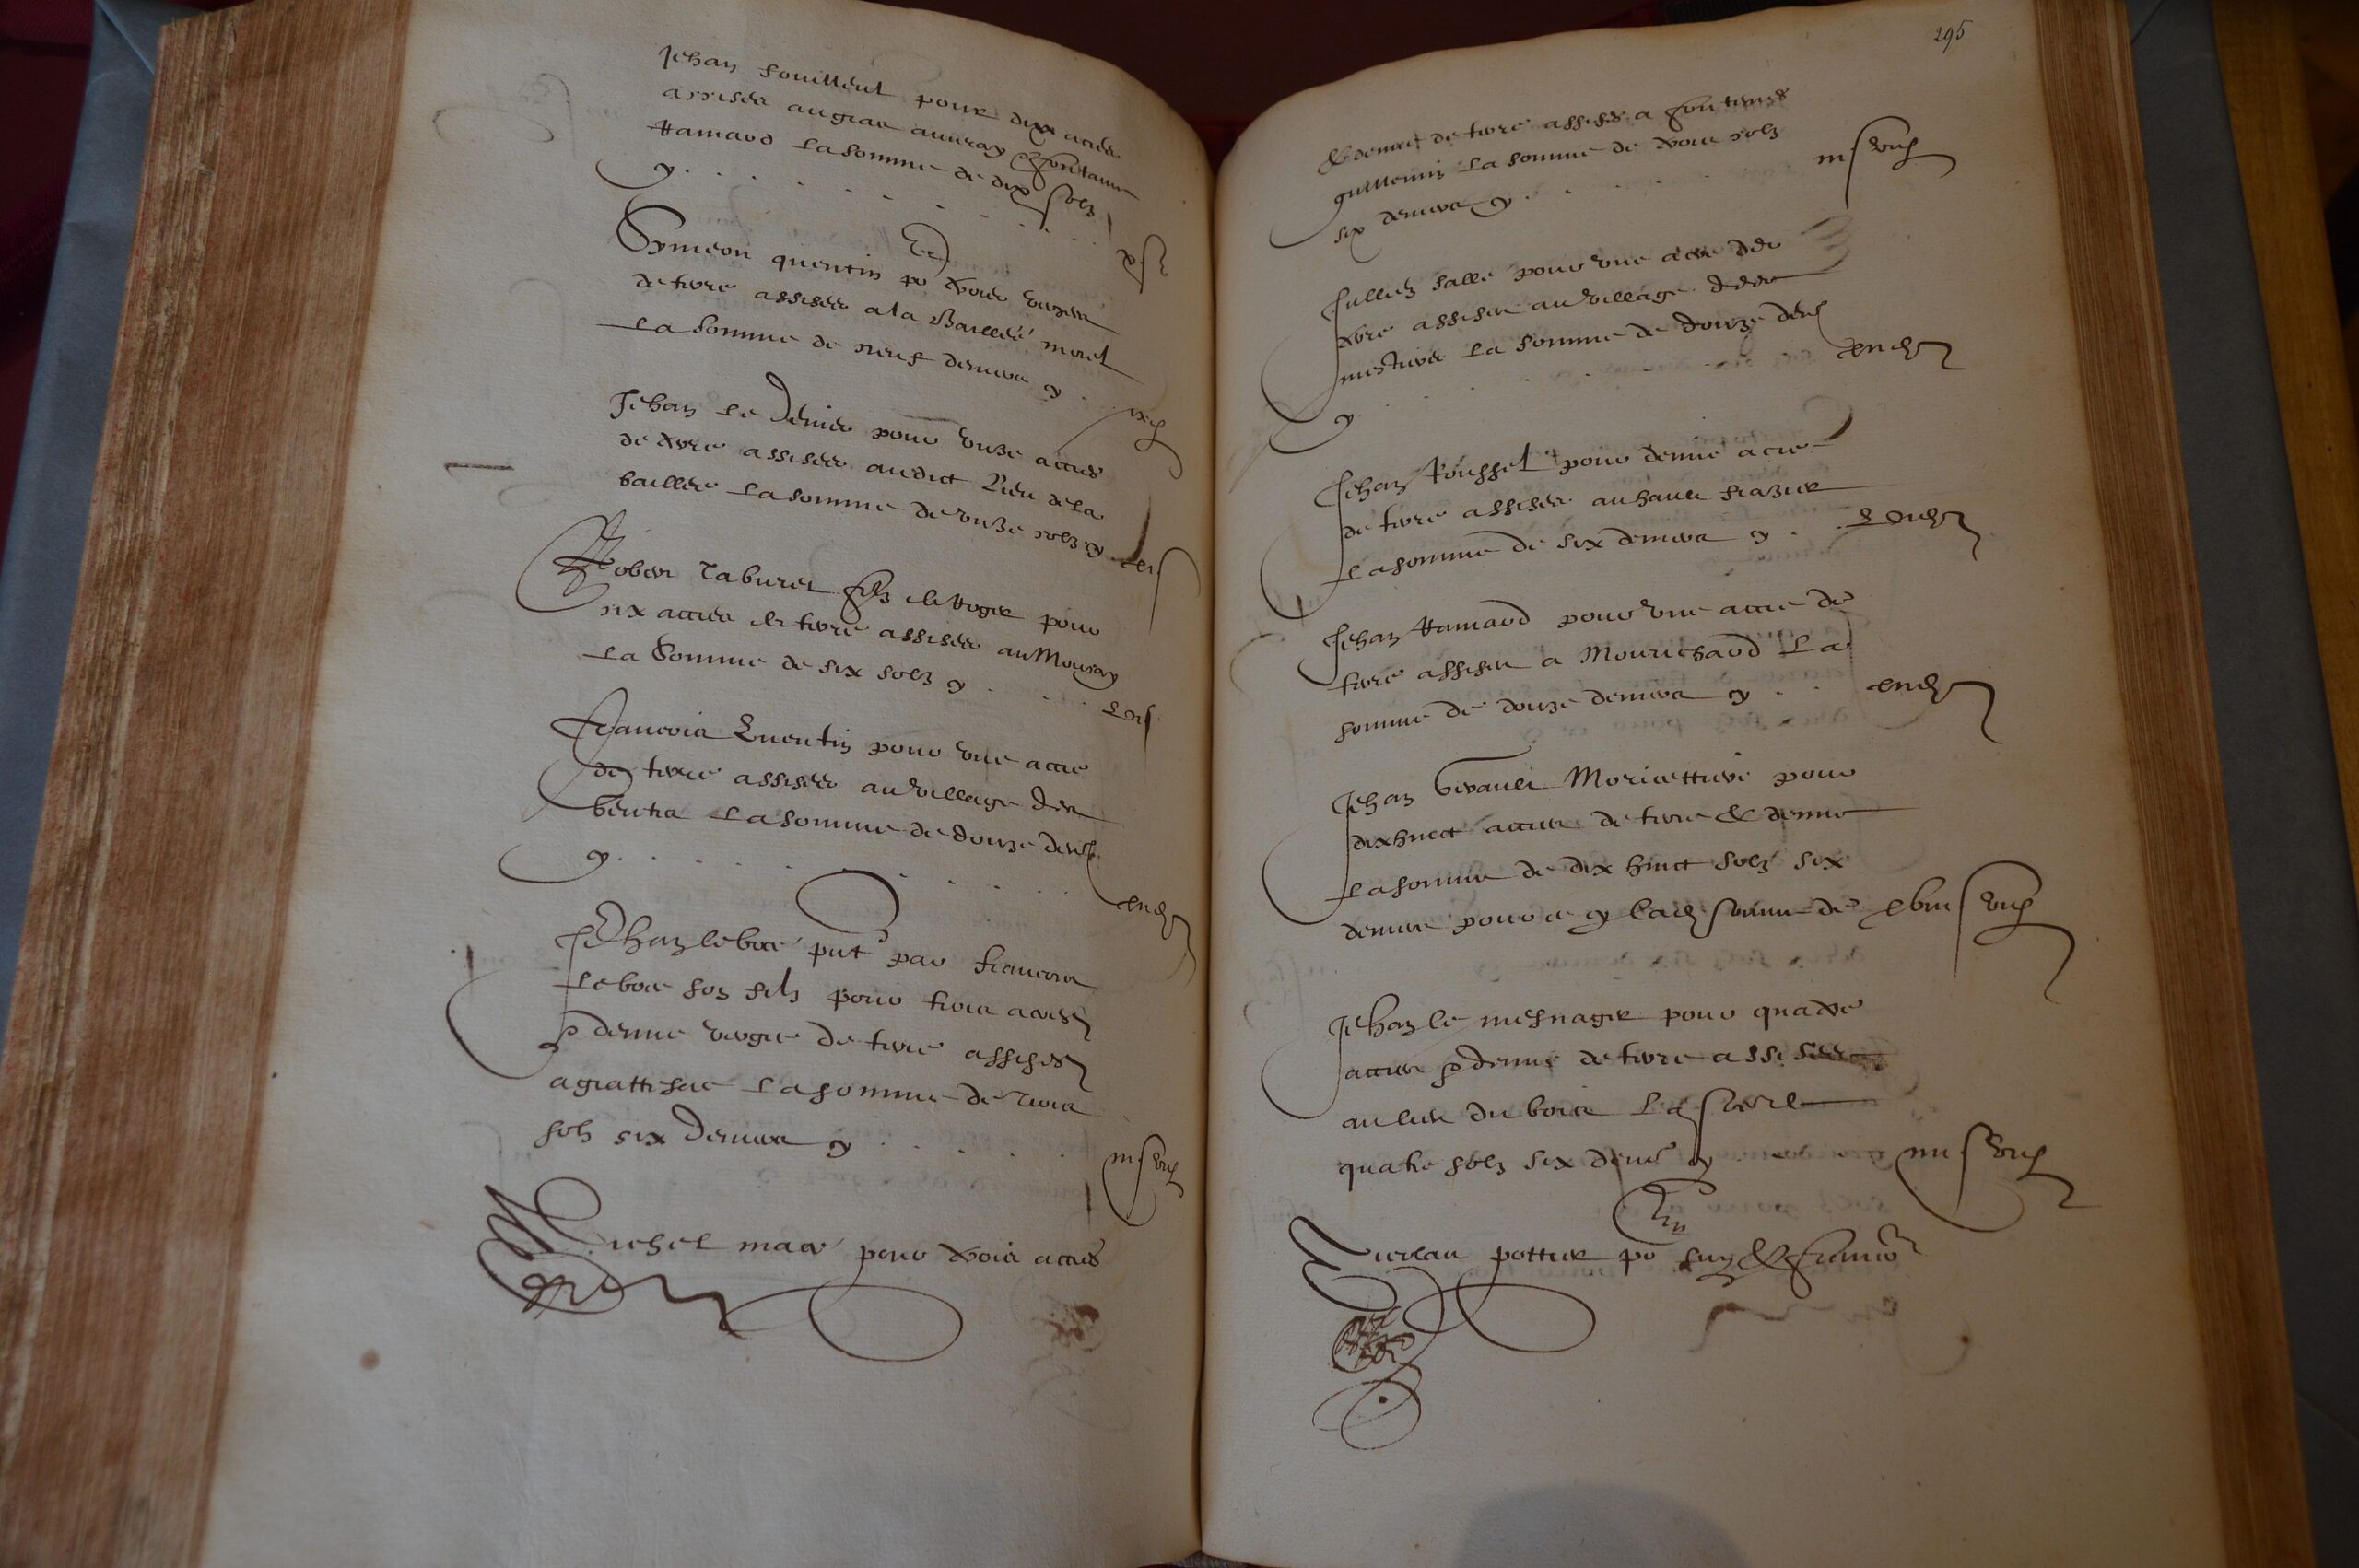 Jehan fouilleul pour dix acres
assises au grae auvray & fontaine
Hamard la somme de dix solz
cy . . . . . . . . xs
Symeon quentin po trois verges
de terre assises a la Baillee morel
la somme de neuf deniers cy . . ixd
Jehan le Denier pour unze acres
de terre assises audict lieu de la
baillee la somme de unze solz cy . xis
Robert Taburet filz de Roger pour
six acres de terre assises au Mousay
la somme de six solz cy . . . vis
Francois Quentin pour une acre
de terre assises au village des
la somme de douze den
cy . . . . . . . . xiid
Jehan le boce pnt par francois
le boce son filz pour trois acres
& demie vergee de terre assises
la somme de trois
solz six deniers cy . . . . . iiis vid
Michel mace pour trois acres
295
& demie de terre assises a fontenes
guillemin la somme de trois solz
six deniers cy . . . . . iiis vid
Jullien Salle pour une acre de
terre assise au village des
la somme de douze den
cy . . . . . xiid
Jehan Roussel pour demie acre
de terre assises au hault
la somme de six deniers cy . . vid
Jehan Hamard pour une acre de
terre assise a Mourichard la
somme de douze deniers cy . . . xiid
Jehan pour
dix huict acres de terre & demie
la somme de dix huict solz six
deniers pour ce cy ladicte somme de xviiis vid
Jehan le mesnager pour quatre
acres & demie de terre assises
au lieu du bois la somme
quatre solz six deniers cy . . . iiiis vid
pottier po luy & francois